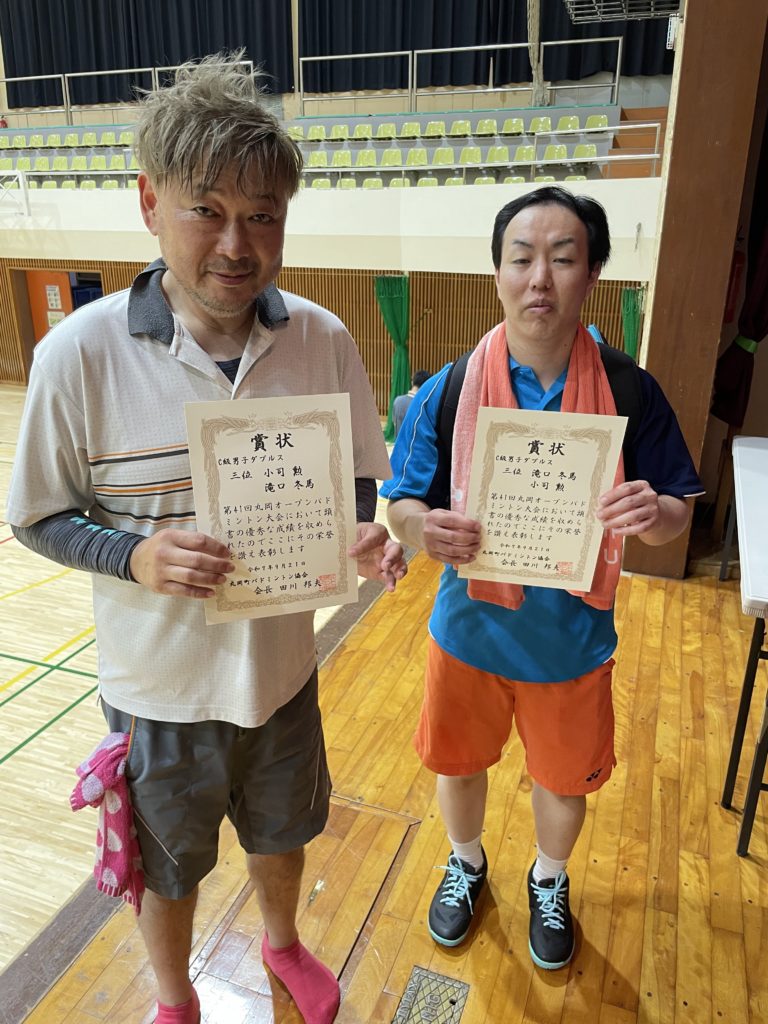 賞状
C級男子ダブルス
三位 小司 勲
滝口 冬馬
第41回丸岡オープンバド
ミントン大会において頭
書の優秀な成績を収めら
れたのでここにその栄誉
を讃え表彰します
令和7年9月21日
丸岡町バドミントン協会
会長 田川 邦夫
賞状
C級男子ダブルス
三位 滝口 冬馬
小司 勲
第41回丸岡オープンバド
ミントン大会において頭
書の優秀な成績を収めら
れたのでここにその栄誉
を讃え表彰します
令和7年9月21日
丸岡町バドミントン協会
会長 田川 邦夫